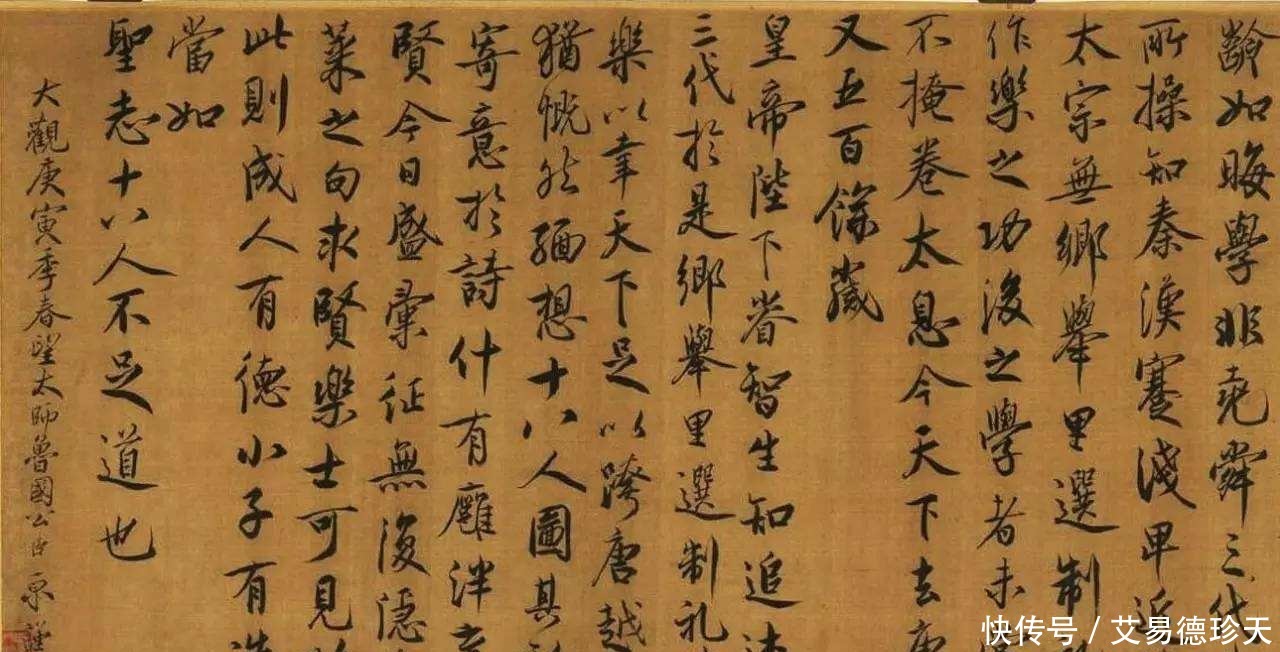 齡如晦學非堯舜三代
所操知秦漢蹇淺甲近
太宗無鄉舉里選制
作樂之功後之學者未
不掩卷太息今天下去唐
又五百餘歲
皇帝陛下睿智生知追述
三代於是鄉舉里選制礼
樂以幸天下足以跨唐越
猶慨然緬想十八人圖其
寄意於詩什有廱泮之
賢今日盛彙征無復隱
萊之句求賢樂士可見
此則成人有德小子有造
當如
聖志十八人不足道也
大觀庚寅季春望太師魯國公臣京謹
快传号/艾易德珍天